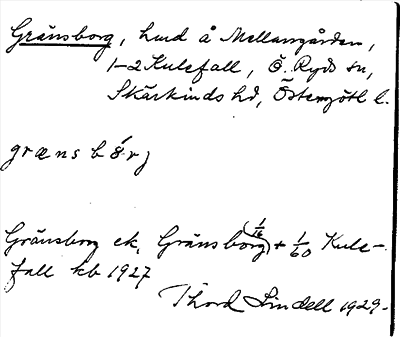 Gränsborg, hmd å Mellangården,
1-2 Kulefall, Ö. Ryds sn,
Skärkinds hd, Östergötl l.
græns b ó̵r j
Gränsborg ek, Gränsborg (1/16) + 1/60 Kule-
fall kb 1927
Thord Lindell 1929-